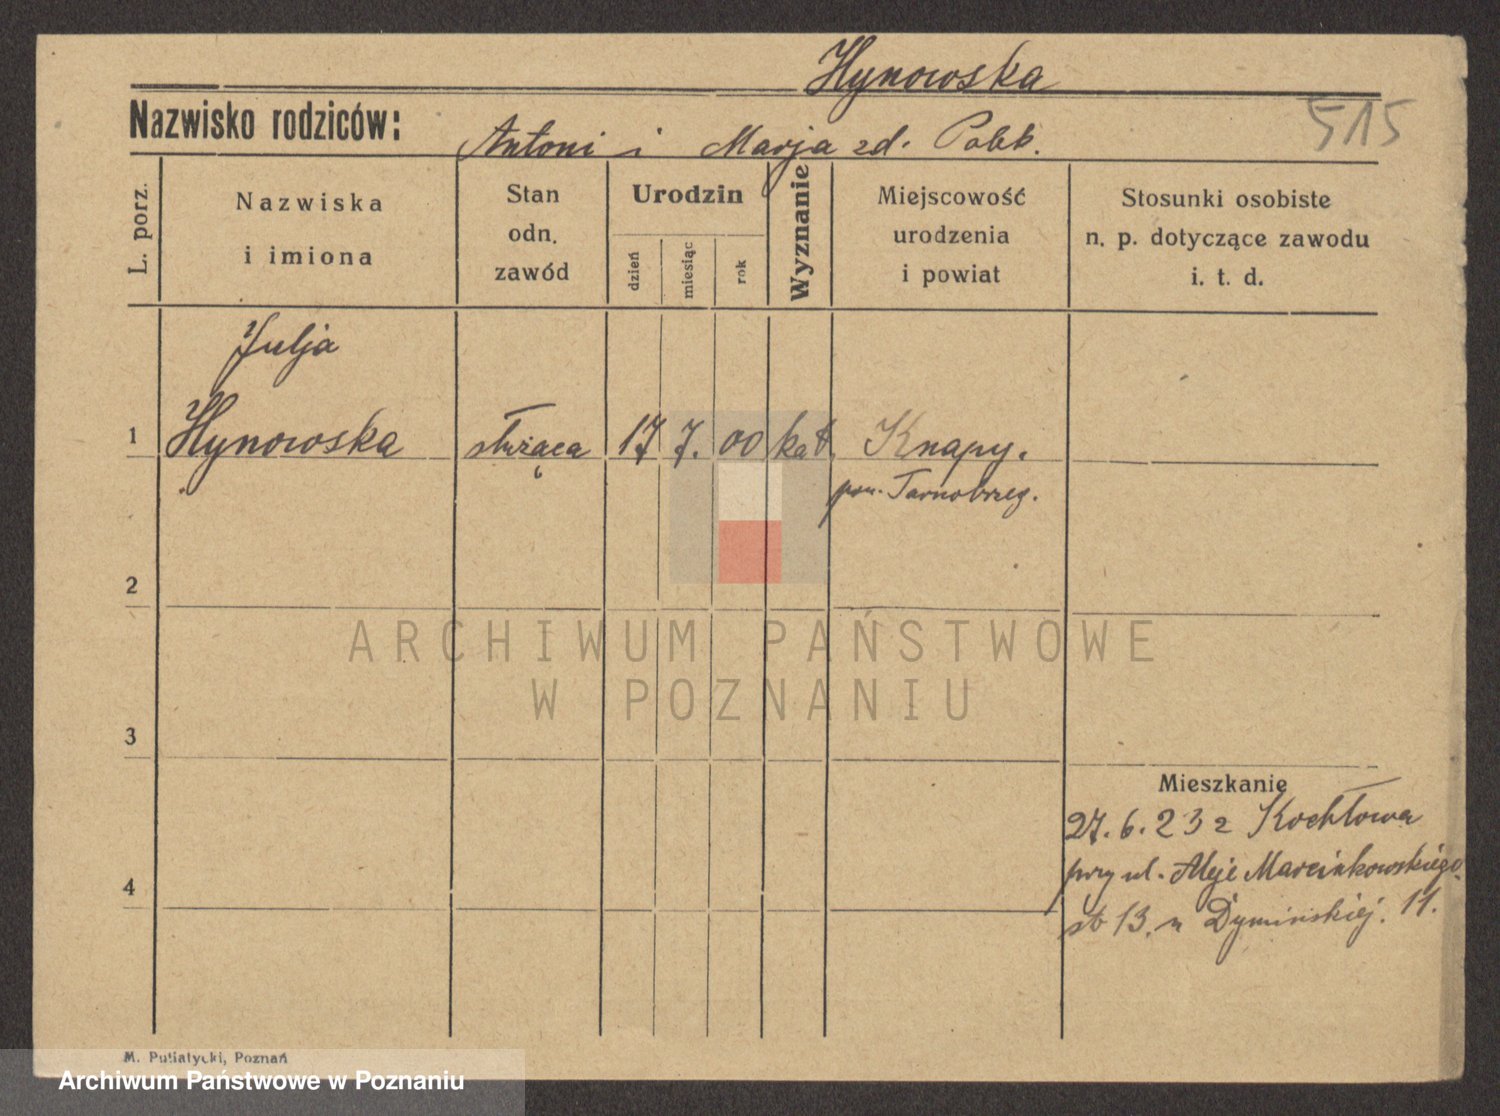 Hynowska
Nazwisko rodziców: Antoni i Marja zd.
515
L. porz.
Nazwiska i imiona
Stan odn. zawód
Urodzin
dzień
miesiąc
rok
Wyznanie
Miejscowość urodzenia i powiat
Stosunki osobiste n. p. dotyczące zawodu i. t. d.
Julja
1 Hynowska służąca 17 7. 00 kat. Knapy.
pow. Tarnobrzeg.
2
ARCHIWUM PAŃSTWOWE
W POZNANIU
3
Mieszkanie
27. 6. 23 z Kochłowa
4
przy ul. Aleje Marcinkowskiego
13. u Dymińskiej. 11.
M. Putiatycki, Poznań
Archiwum Państwowe w Poznaniu